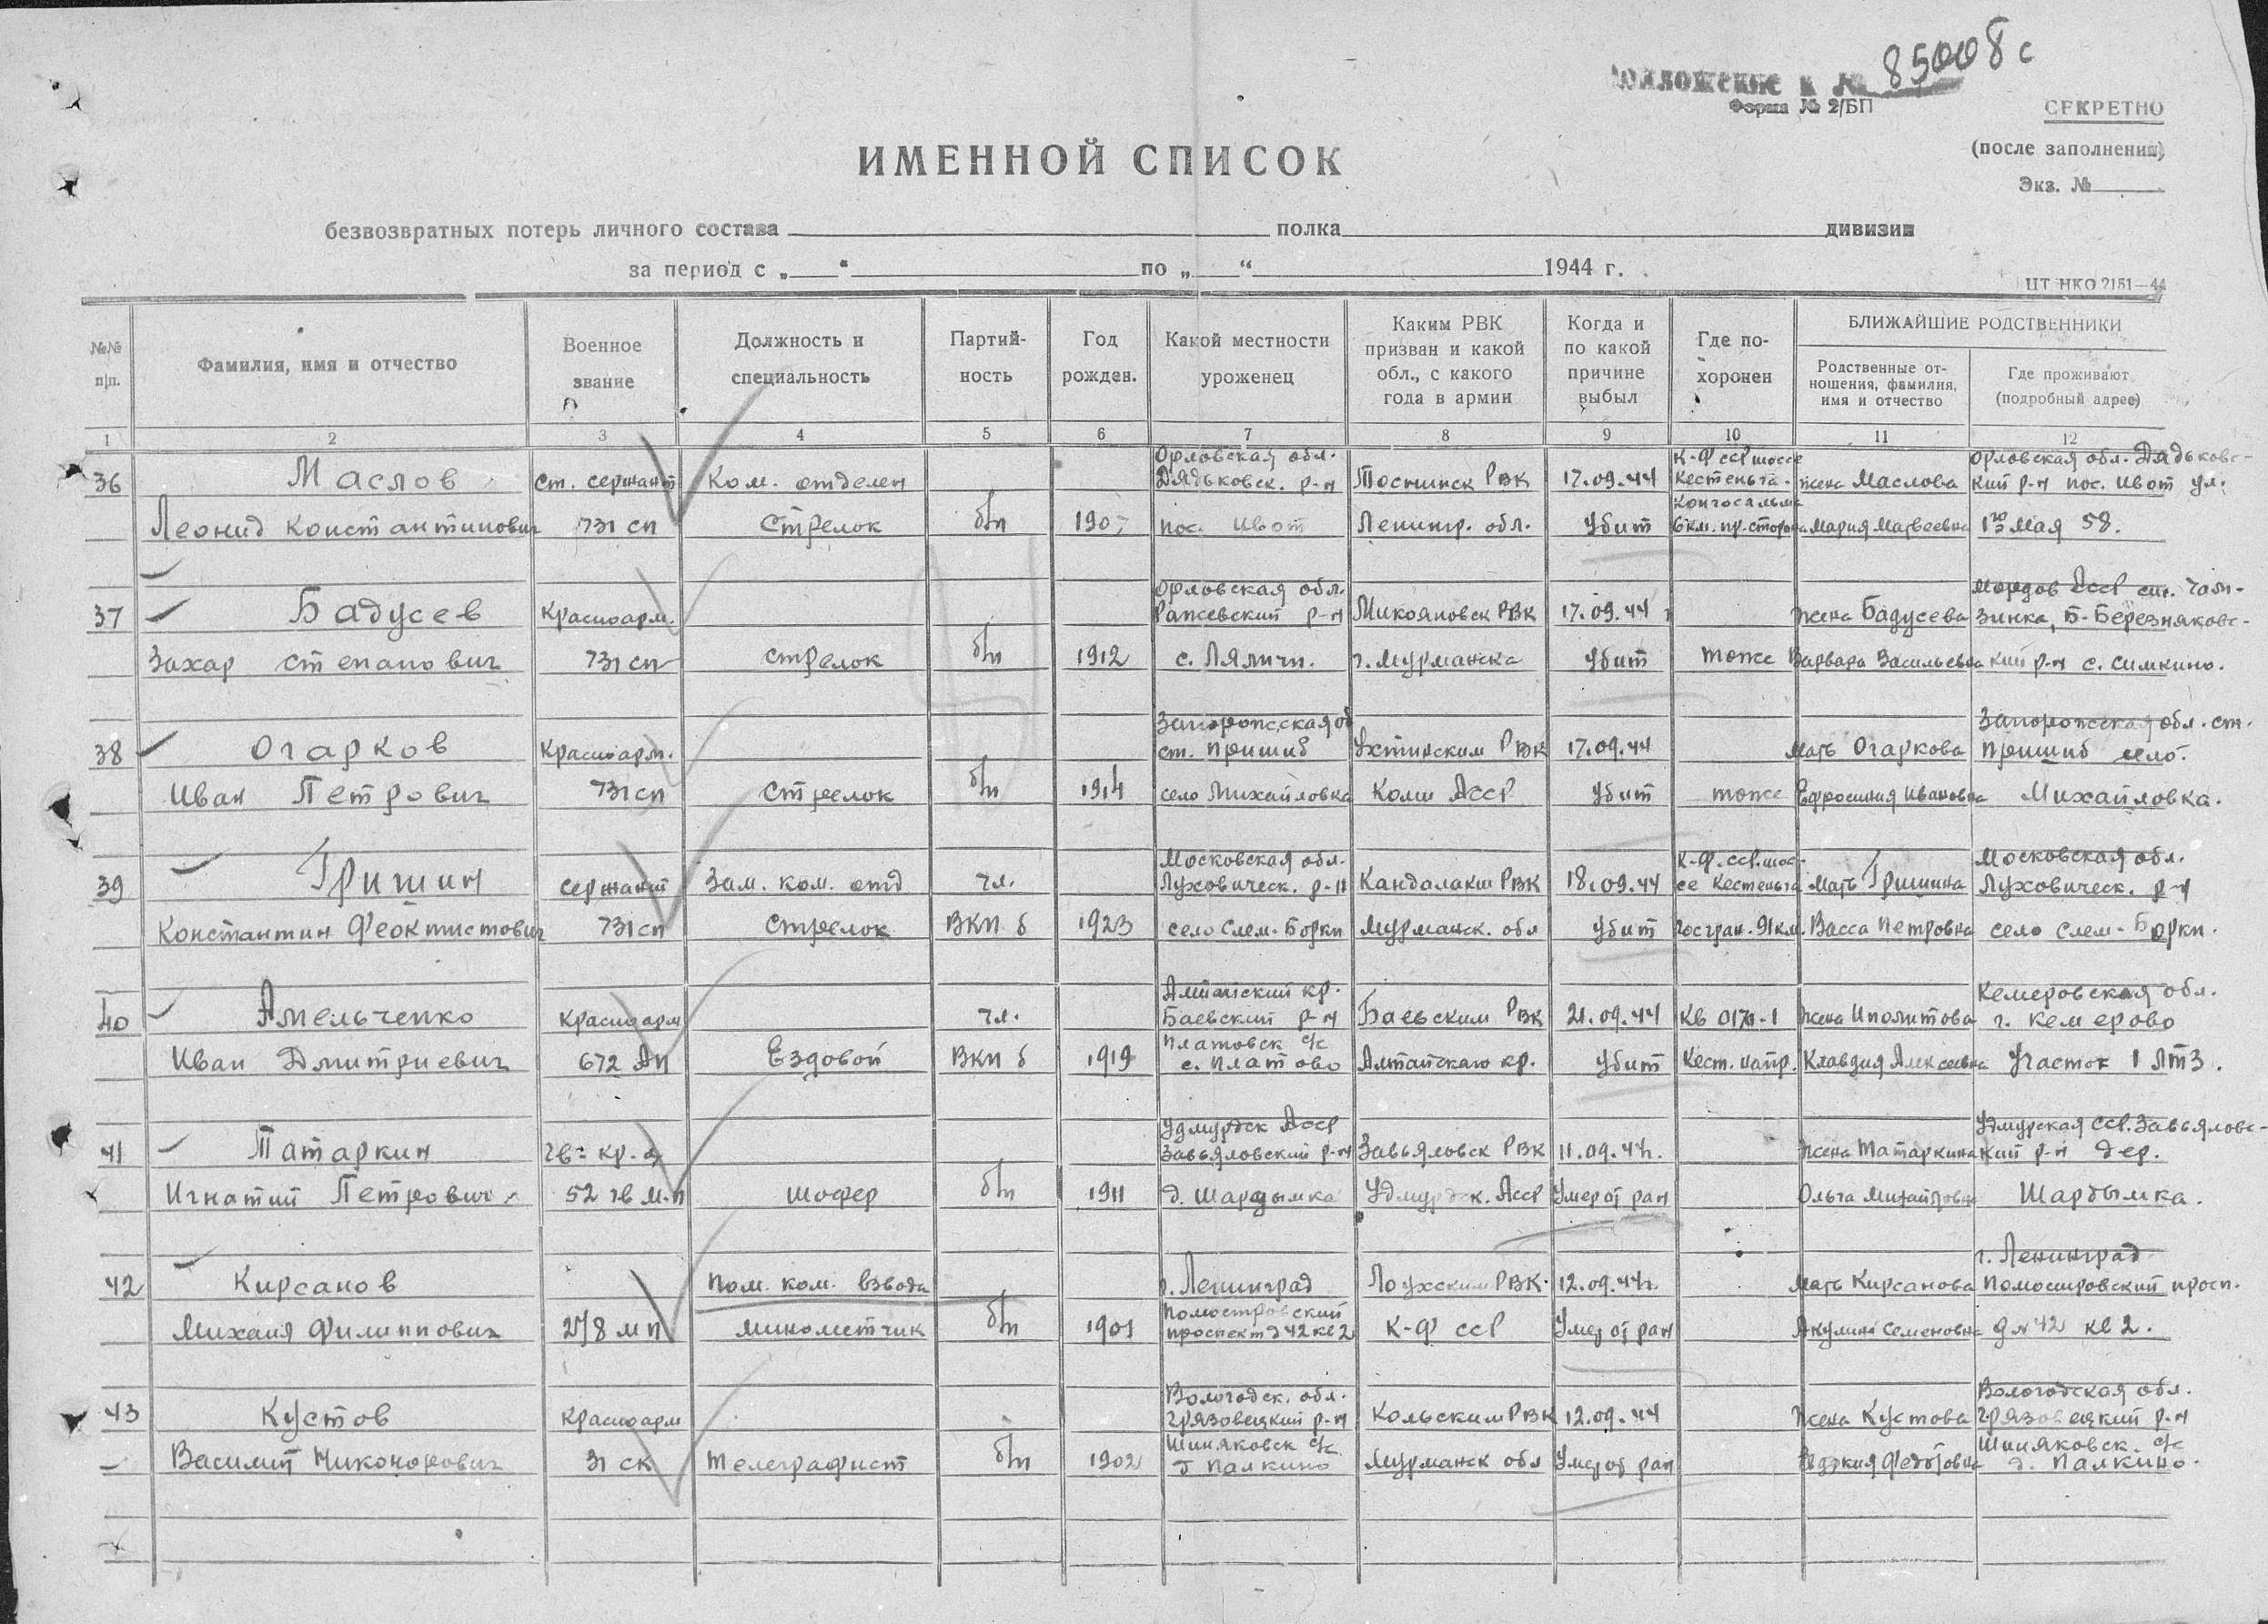 Приложение к № 85008с
Форма № 2/БП
СЕКРЕТНО
(после заполнения)
Экз. №
ИМЕННОЙ СПИСОК
безвозвратных потерь личного состава полка дивизии
за период с „ “ по „ “ 1944 г.
ЦТ НКО 2151—44
№№ п/п. Фамилия, имя и отчество Военное звание Должность и специальность Партий-ность Год рожден. Какой местности уроженец Каким РВК призван и какой обл., с какого года в армии Когда и по какой причине выбыл Где по-хоронен БЛИЖАЙШИЕ РОДСТВЕННИКИ
Родственные от-ношения, фамилия, имя и отчество Где проживают (подробный адрес)
1 2 3 4 5 6 7 8 9 10 11 12
Орловская обл. К-Ф ССР шоссе Орловская обл. Дядьковс-
36 Маслов Ст. сержант Ком. отделен Дядьковск. р-н Тоснинск РВК 17.09.44 Кестеньга- жена Маслова кий р-н пос. Ивот ул.
Конгосальма
Леонид Константинович 731 сп Стрелок б/п 190 пос. Ивот Ленингр. обл. Убит 6 км. пр. сторона Мария Матвеевна 1го Мая 58.
Орловская обл. Мордов АССР ст. Чам-
37 Бадусев Красноарм. р-н Микояновск РВК 17.09.44 жена Бадусева зинка, Б-Березняковс-
Захар Степанович 731 сп стрелок б/п 1912 с. Ляличи. г. Мурманска Убит тоже Варвара Васильевна кий р-н с. Симкино.
Запорожская об Запорожская обл. ст.
38 Огарков Красноарм. ст. Пришиб Ухтинским РВК 17.09.44 мать Огаркова Пришиб село.
Иван Петрович 731 сп Стрелок б/п 1914 село Михайловка Коми АССР Убит тоже Ефросиния Ивановна Михайловка.
Московская обл. К-Ф. ССР. шос- Московская обл.
39 Гришин сержант Зам. ком. отд чл. Луховическ. р-н Кандалакш РВК 18.09.44 се Кестеньга мать Гришина Луховическ. р-н
Константин Феоктистович 731 сп Стрелок ВКП б 1923 село Слем-Борки Мурманск. обл Убит Госгран. 91 км. Васса Петровна село Слем-Борки.
Алтайский кр. Кемеровская обл.
40 Амельченко Красноарм чл. Баевский р-н Баевским РВК 21.09.44 Кв жена Иполитова г. Кемерово
Платовск с/с
Иван Дмитриевич 672 АП Ездовой ВКП б 1919 с. Платово Алтайского кр. Убит Кест. напр. Клавдия Алексеевна Участок 1 ЛТЗ.
Удмуртск АССР Удмурская ССР. Завьяловс-
41 Татаркин гв. кр-ц Завьяловский р-н Завьяловск РВК 11.09.44г. жена Татаркина кий р-н дер.
Игнатий Петрович 52 гв м.п шофер б/п 1911 д. Шардымка Удмуртск. АССР Умер от ран Ольга Михайловна Шардымка.
г. Ленинград
42 Кирсанов Пом. ком. взвода г. Ленинград Лоухским РВК 12.09.44г. мать Кирсанова Полюстровский просп.
Полюстровский
Михаил Филиппович 278 мп минометчик б/п 1901 проспект д 42 кв 2 К-Ф ССР Умер от ран Акулина Семеновна д № 42 кв 2.
Вологодск. обл. Вологодская обл.
43 Кустов Красноарм Грязовецкий р-н Кольским РВК 12.09.44 жена Кустова Грязовецкий р-н
Шиняковск с/с Шиняковск. с/с
Василий Никонорович 31 ск Телеграфист б/п 1902 д Палкино Мурманск обл Умер от ран Евдокия Федоровна д. Палкино.